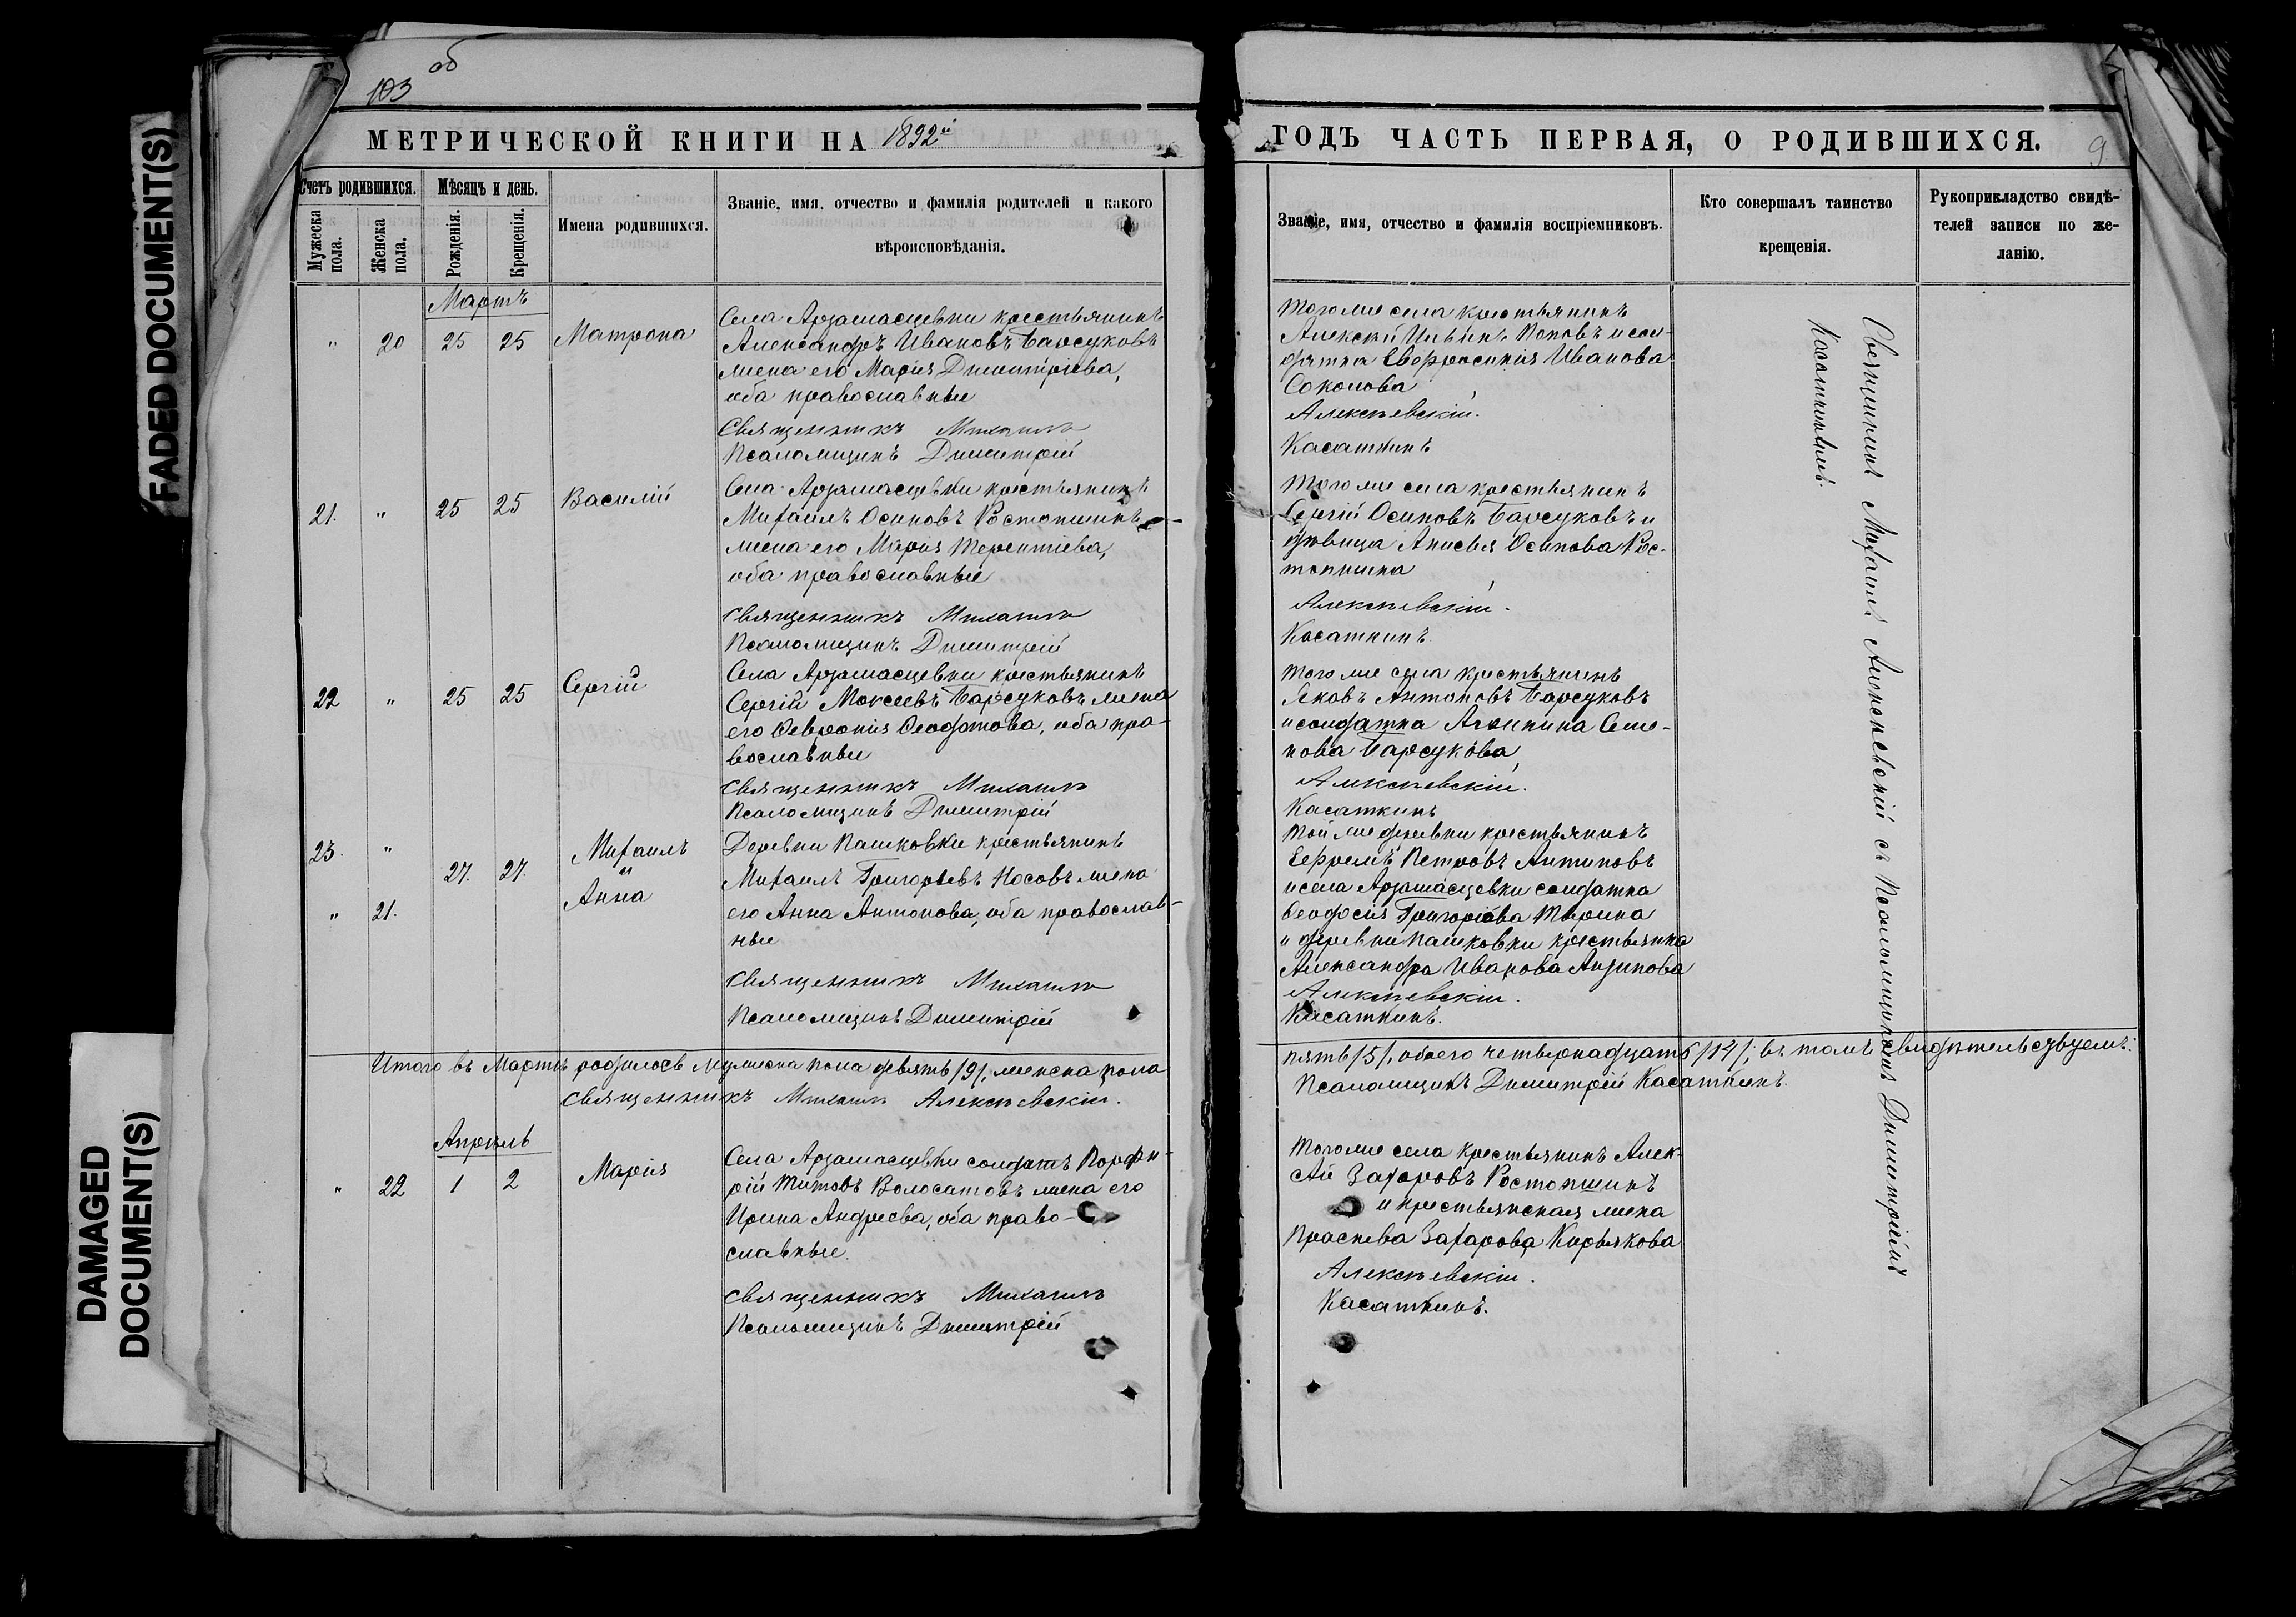 103 об
МЕТРИЧЕСКОЙ КНИГИ НА 1892й
Счетъ родившихся.
Мѣсяцъ и день.
Мужеска пола.
Женска пола.
Рожденія.
Крещенія.
Имена родившихся.
Званіе, имя, отчество и фамилія родителей и какого
вѣроисповѣданія.
Мартъ
" 20 25 25 Матрона
Села Арзамасцевки крестьянинъ
Александръ Ивановъ Барсуковъ
жена его Марія Димитріева,
оба православные
Священникъ Михаилъ
Псаломщикъ Димитрій
21. " 25 25 Василій
Села Арзамасцевки крестьянинъ
Михаилъ Осиповъ Ростопшинъ
жена его Марія Терентіева,
оба православные
Священникъ Михаилъ
Псаломщикъ Димитрій
22 " 25 25 Сергій
Села Арзамасцевки крестьянинъ
Сергій Моксеевъ Барсуковъ жена
его Февронія Феодотова, оба пра-
вославные
Священникъ Михаилъ
Псаломщикъ Димитрій
23. " 27. 27. Михаилъ
и
" 21. Анна
Деревни Пашковки крестьянинъ
Михаилъ Григорьевъ Носовъ жена
его Анна Антонова, оба православ-
ные
Священникъ Михаилъ
Псаломщикъ Димитрій
Итого въ Мартѣ родилось мужеска пола девять /9/, женска пола
Священникъ Михаилъ Алексѣевскій.
Апрѣль
" 22 1 2 Марія
Села Арзамасцевки солдатъ Порфи-
рій Титовъ Волосатовъ жена его
Ирина Андреева, оба право-
славные.
Священникъ Михаилъ
Псаломщикъ Димитрій
ГОДЪ ЧАСТЬ ПЕРВАЯ, О РОДИВШИХСЯ.
9
Званіе, имя, отчество и фамилія воспріемниковъ.
Кто совершалъ таинство
крещенія.
Рукоприкладство свидѣ-
телей записи по же-
ланію.
Того же села крестьянинъ
Алексѣй Ильинъ Поповъ и сол-
датка Евфросинія Иванова
Соколова
Алексѣевскій.
Касаткинъ
Того же села крестьянинъ
Сергій Осиповъ Барсуковъ и
дѣвица Анисья Осипова Рос-
топшина
Алексѣевскій.
Касаткинъ.
Того же села крестьянинъ
Яковъ Антоновъ Барсуковъ
и солдатка Семе-
нова Барсукова
Алексѣевскій.
Касаткинъ
Той же деревни крестьянинъ
Ефремъ Петровъ Антиповъ
и села Арзамасцевки солдатка
Феодосія Григоріева
и деревни Пашковки крестьянка
Александра Иванова
Алексѣевскій.
Касаткинъ.
пять /5/, обоего четырнадцать /14/; въ томъ свидѣтельствуемъ:
Псаломщикъ Димитрій Касаткинъ.
Того же села крестьянинъ Алек-
сѣй Захаровъ Ростопшинъ
и крестьянская жена
Праскева Захарова Кирьякова
Алексѣевскій.
Касаткинъ.
Священникъ Михаилъ Алексѣевскій съ Псаломщикомъ Димитріемъ
Касаткинымъ
FADED DOCUMENT(S)
DAMAGED
DOCUMENT(S)